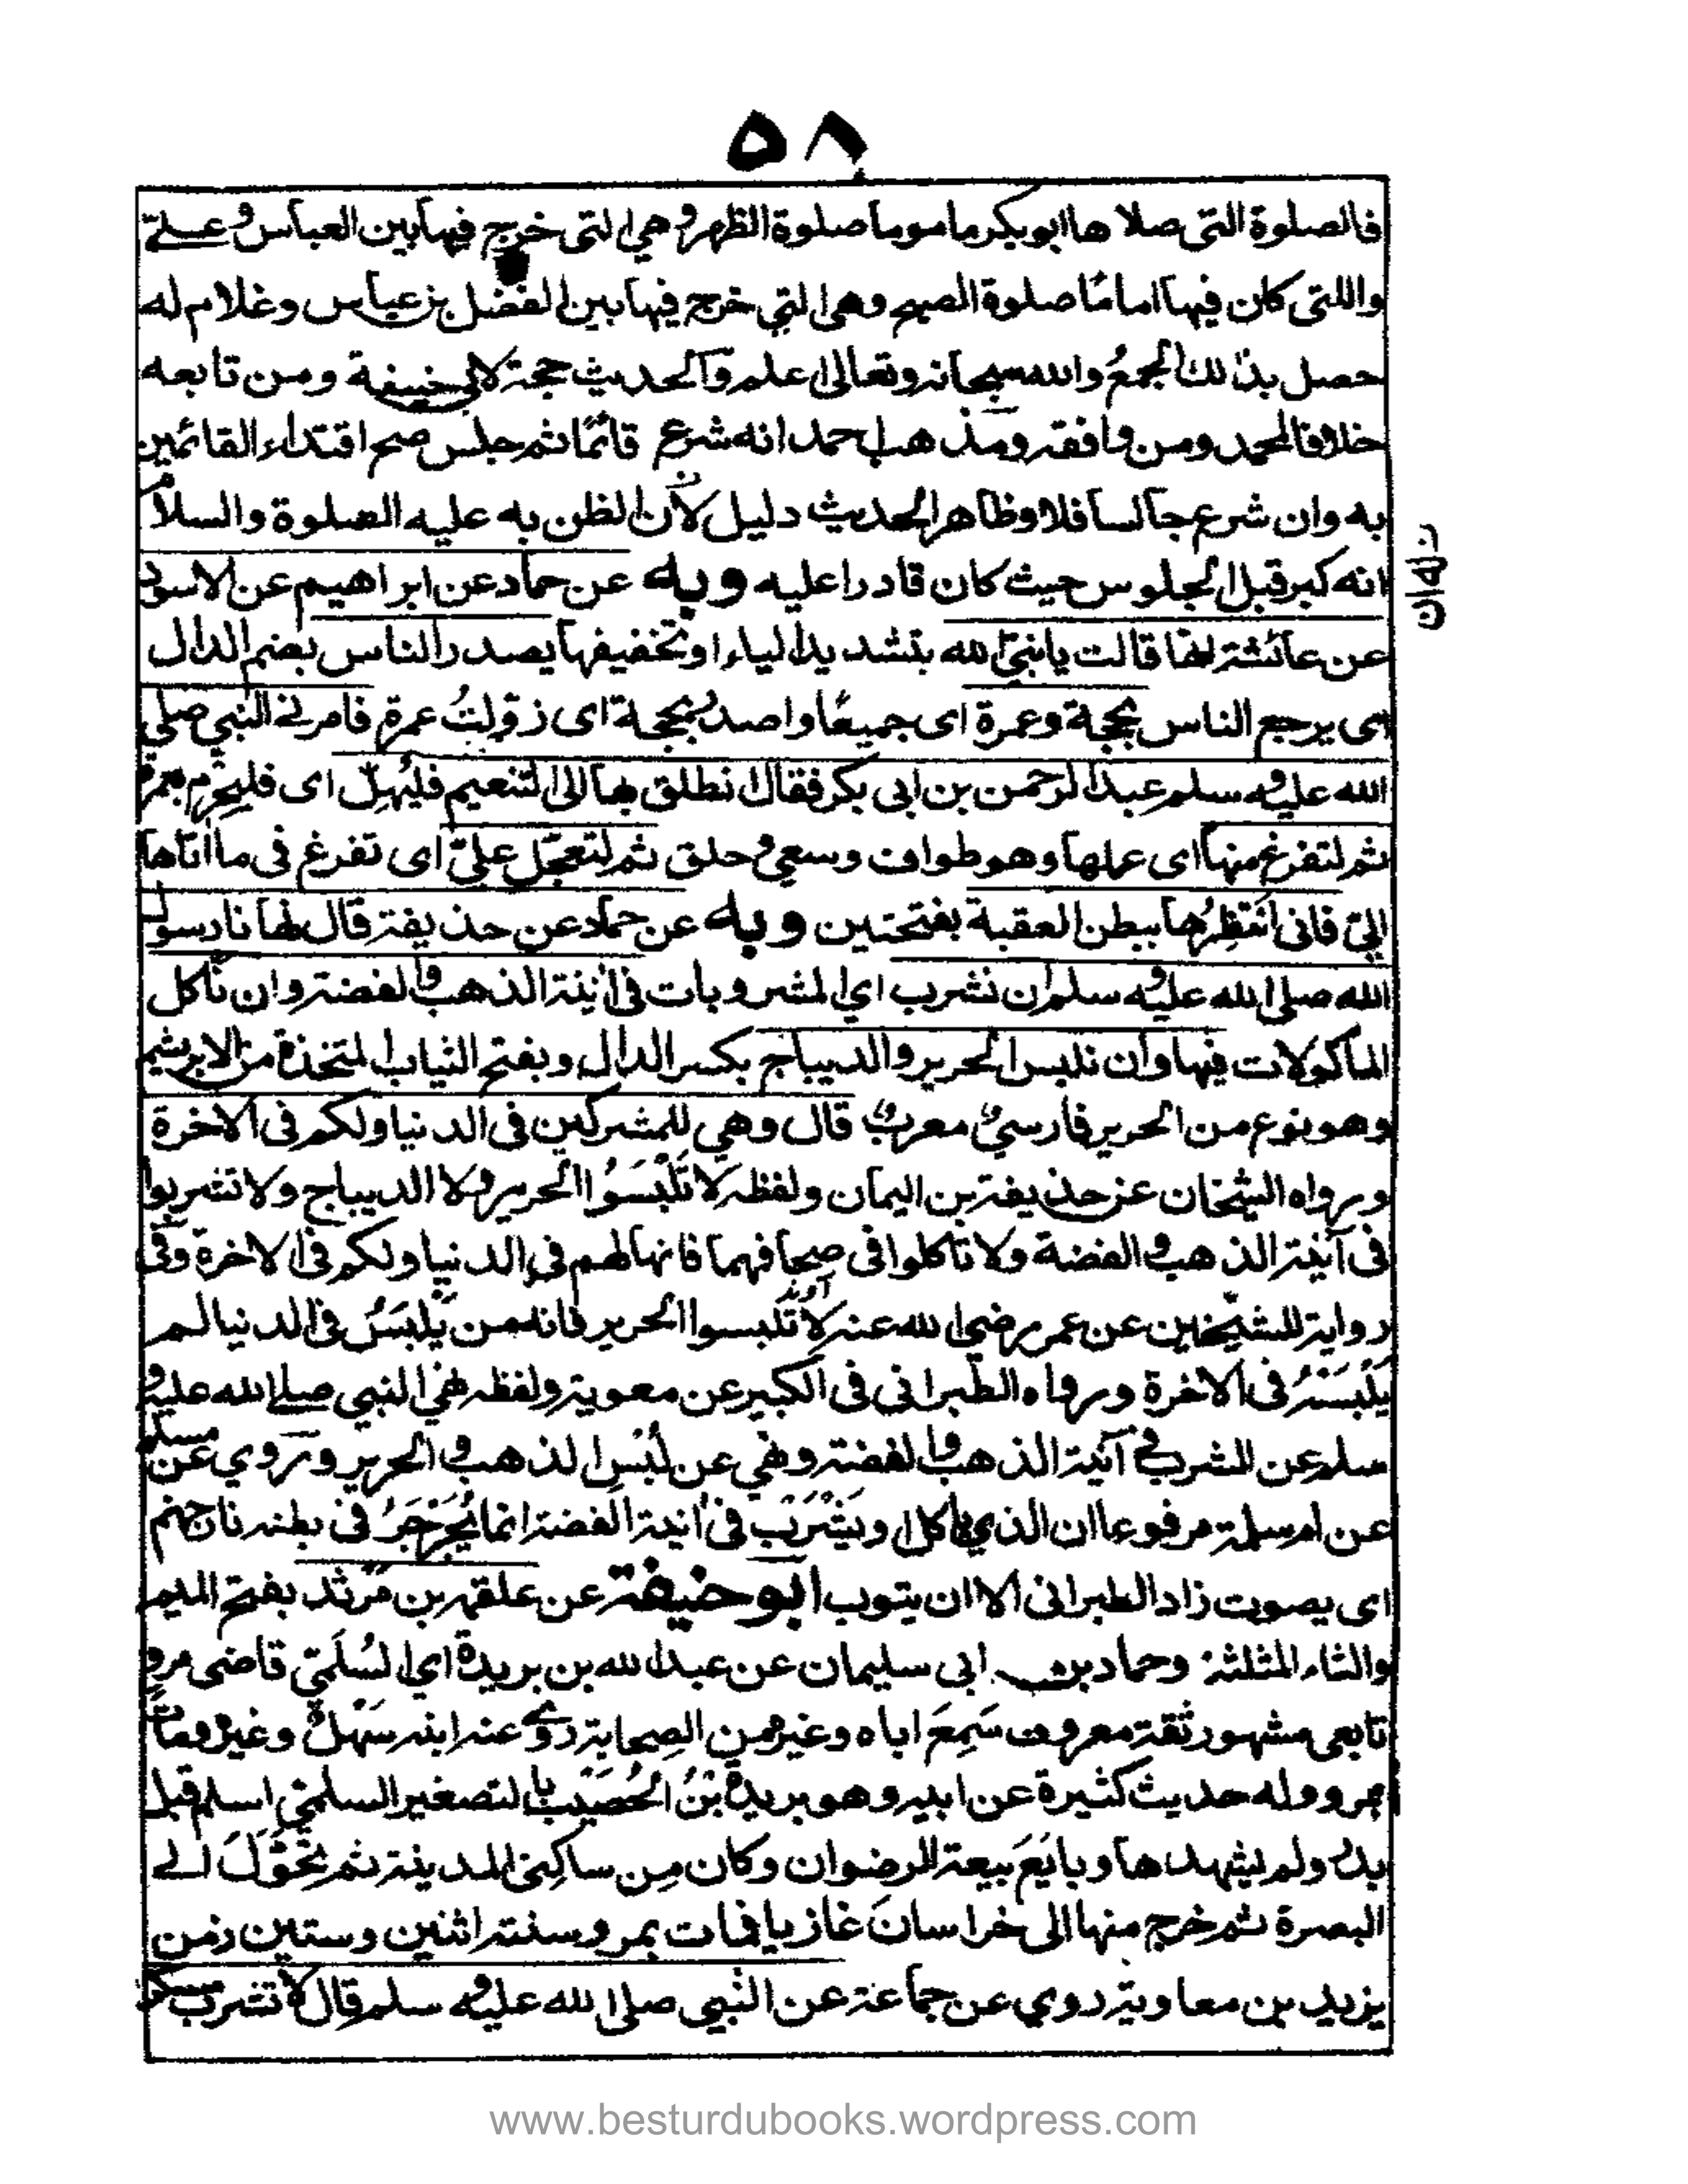 ٥٨
فالصلوة التى صلاها ابو بكر ماموما صلوة الظهر وهي التى خرج فيها بين العباس وعلي
واللتى كان فيها اماما صلوة الصبح وهى التي خرج فيها بين الفضل بن عباس وغلام له
حصل بذلك الجمعُ والله سبحانه وتعالى اعلم والحديث حجة لابى حنيفة ومن تابعه
خلافا لمحمد ومن وافقه ومذهب احمد انه شرع قائمًا ثم جلس صح اقتداء القائمين
به وان شرع جالسا فلا وظاهر الحديث دليل لان الظن به عليه الصلوة والسلام
انه كبر قبل الجلوس حيث كان قادرا عليه وبه عن حماد عن ابراهيم عن الاسود
عن عائشة انها قالت يا نبيّ الله بتشديد الياء او تخفيفها يصدر الناس بضم الدال
اى يرجع الناس بحجة وعمرة اى جميعًا واصدر بحجة اى فامرنى النبي صلى
الله عليه وسلم عبد الرحمن بن ابى بكر فقال انطلق بها الى التنعيم فليُهِلّ اى فليحرم بعمرة
ثم لتفرغ منها اى عملها وهو طواف وسعي وحلق ثم لتعجّل عليّ اى تفرغ فى ما اتاها
اليّ فانى انتظِرُها ببطن العقبة بفتحتين وبه عن حماد عن حذيفة قال نهانا رسول
الله صلى الله عليه وسلم ان نشرب اى المشروبات فى انية الذهب والفضة وان ناكل
الماكولات فيها وان نلبس الحرير والديباج بكسر الدال وبفتح الثياب المتخذة من الابريشم
وهو نوع من الحرير فارسيٌ معربٌ قال وهي للمشركين فى الدنيا ولكم فى الاخرة
ورواه الشيخان عن حذيفة بن اليمان ولفظه لا تَلْبَسُوا الحرير ولا الديباج ولا تشربوا
فى آنية الذهب والفضة ولا تاكلوا فى صحافهما فانها لهم فى الدنيا ولكم فى الاخرة وفى
رواية للشيخين عن عمر رضى الله عنه لا تلبسوا الحرير فانه من يلبَسُ فى الدنيا لم
يَلْبَسْهُ فى الاخرة ورواه الطبرانى فى الكبير عن معوية ولفظه نهى النبي صلى الله عليه و
سلم عن الشرب فى آنية الذهب والفضة ونهي عن لُبْسِ الذهب والحرير وروي مسلم عن
عن ام سلمة مرفوعا ان الذي ياكل ويَشْرَب فى انية الفضة انما يُجَرْجِرُ فى بطنه نار جهنم
اى يصوت زاد الطبرانى الا ان يتوب ابو حنيفة عن علقمة بن مَرْثد بفتح الميم
والثاء المثلثة وحماد بن ابى سليمان عن عبد الله بن بريدة اى السُلَمِيّ قاضى مرو
تابعى مشهور ثقة معروف سَمِعَ اباه وغيره من الصحابة روى عنه ابنه سَهْلٌ وغيره ومات
بمرو وله حديث كثيرة عن ابيه وهو بريدة بْنُ الحُصَيْب بالتصغير السلمي اسلم قبل
بدر ولم يشهدها وبايَعَ بيعة الرضوان وكان مِن ساكِنى المدينة ثم تحَوَّلَ الى
البصرة ثم خرج منها الى خراسان غازيا فمات بمرو سنة اثنين وستين زمن
يزيد بن معاوية روي عن جماعة عن النبي صلى الله عليه وسلم قال لا تشرب مسكر
www.besturdubooks.wordpress.com